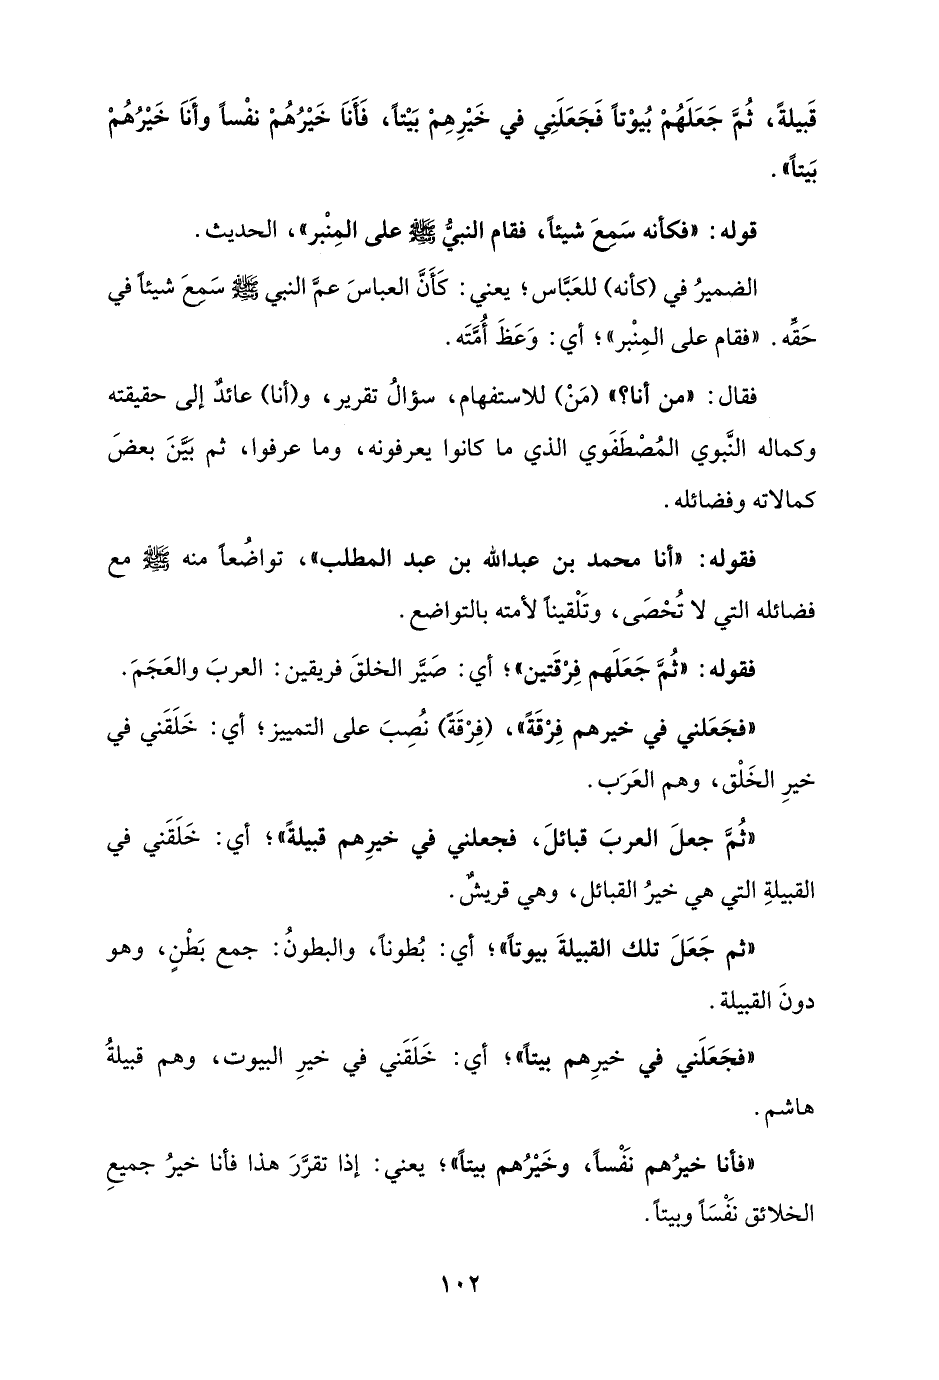 قَبيلةً، ثُمَّ جَعَلَهُمْ بُيوْتاً فَجَعَلَنِي في خَيْرِهِمْ بَيْتاً، فَأَنَا خَيْرُهُمْ نفْساً وأَنَا خَيْرُهُمْ
بَيتاً».
قوله: «فكأنه سَمِعَ شيئاً، فقام النبيُّ ﷺ على المِنْبر»، الحديث.
الضميرُ في (كأنه) للعَبَّاس؛ يعني: كَأَنَّ العباسَ عمَّ النبي ﷺ سَمِعَ شيئاً في
حَقِّه. «فقام على المِنْبر»؛ أي: وَعَظَ أُمَّتَه.
فقال: «من أنا؟» (مَنْ) للاستفهام، سؤالُ تقرير، و(أنا) عائدٌ إلى حقيقته
وكماله النَّبوي المُصْطَفَوي الذي ما كانوا يعرفونه، وما عرفوا، ثم بَيَّنَ بعضَ
كمالاته وفضائله.
فقوله: «أنا محمد بن عبدالله بن عبد المطلب»، تواضُعاً منه ﷺ مع
فضائله التي لا تُحْصَى، وتَلْقيناً لأمته بالتواضع.
فقوله: «ثُمَّ جَعَلَهم فِرْقَتين»؛ أي: صَيَّر الخلقَ فريقين: العربَ والعَجَمَ.
«فجَعَلني في خيرهم فِرْقَةً»، (فِرْقَةً) نُصِبَ على التمييز؛ أي: خَلَقَني في
خيرِ الخَلْق، وهم العَرَب.
«ثُمَّ جعلَ العربَ قبائلَ، فجعلني في خيرِهم قبيلةً»؛ أي: خَلَقَني في
القبيلةِ التي هي خيرُ القبائل، وهي قريشٌ.
«ثم جَعَلَ تلك القبيلةَ بيوتاً»؛ أي: بُطوناً، والبطونُ: جمع بَطْنٍ، وهو
دونَ القبيلة.
«فجَعَلَني في خيرِهم بيتاً»؛ أي: خَلَقَني في خيرِ البيوت، وهم قبيلةُ
هاشم.
«فأنا خيرُهم نَفْساً، وخَيْرُهم بيتاً»؛ يعني: إذا تقرَّرَ هذا فأنا خيرُ جميعِ
الخلائق نَفْسَاً وبيتاً.
١٠٢